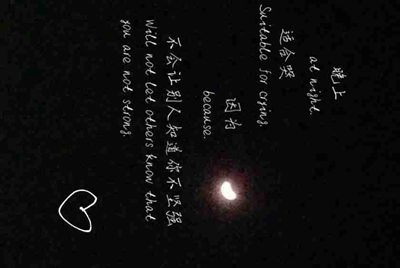 晚上
at night.
适合哭
Suitable for crying.
因为
because.
不会让别人知道你不坚强
Will not let others know that
you are not strong.